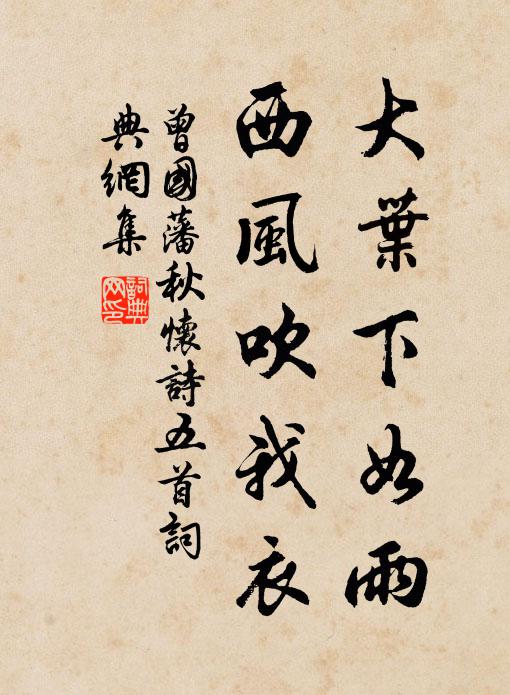 大葉下如雨
西風吹我衣
曾國藩秋懷詩五首詞
典網集
詞典网印